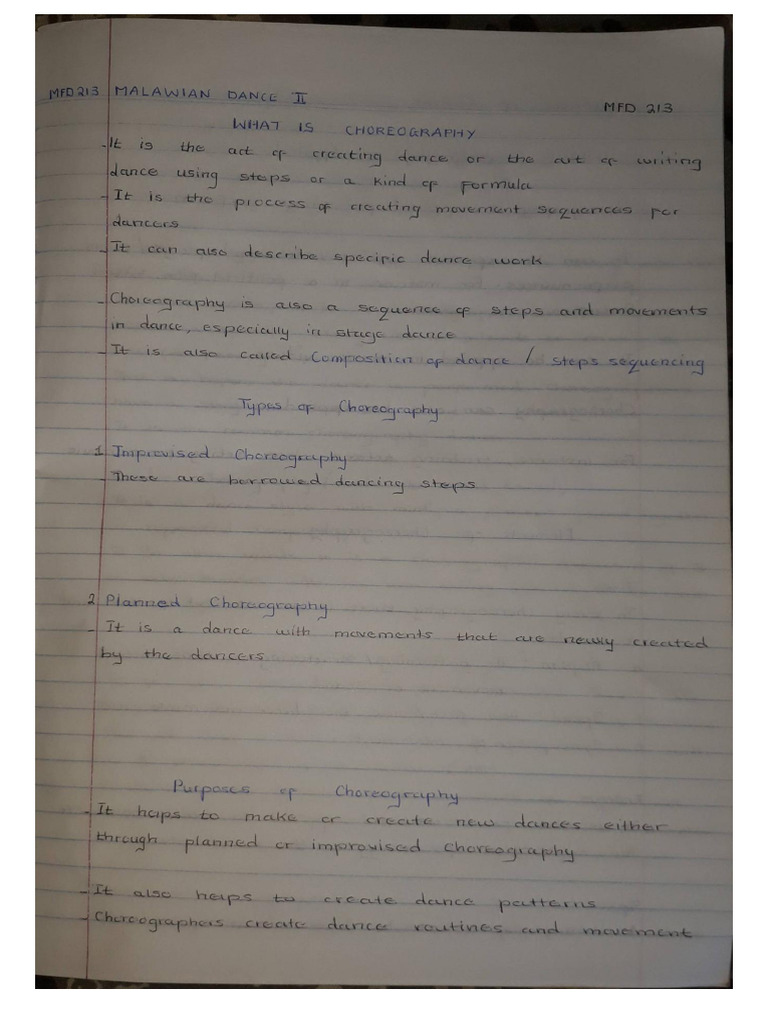 MFD 213 MALAWIAN DANCE II
MFD 213
WHAT IS CHOREOGRAPHY
- It is the act of creating dance or the art of writing
dance using steps or a kind of formula
- It is the process of creating movement sequences for
dancers
- It can also describe specific dance work
- Choreography is also a sequence of steps and movements
in dance, especially in stage dance
- It is also called Composition of dance / steps sequencing
Types of Choreography
1 Improvised Choreography
- These are borrowed dancing steps
2 Planned Choreography
- It is a dance with movements that are newly created
by the dancers
Purposes of Choreography
- It helps to make or create new dances either
through planned or improvised choreography
- It also helps to create dance patterns
- Choreographers create dance routines and movement